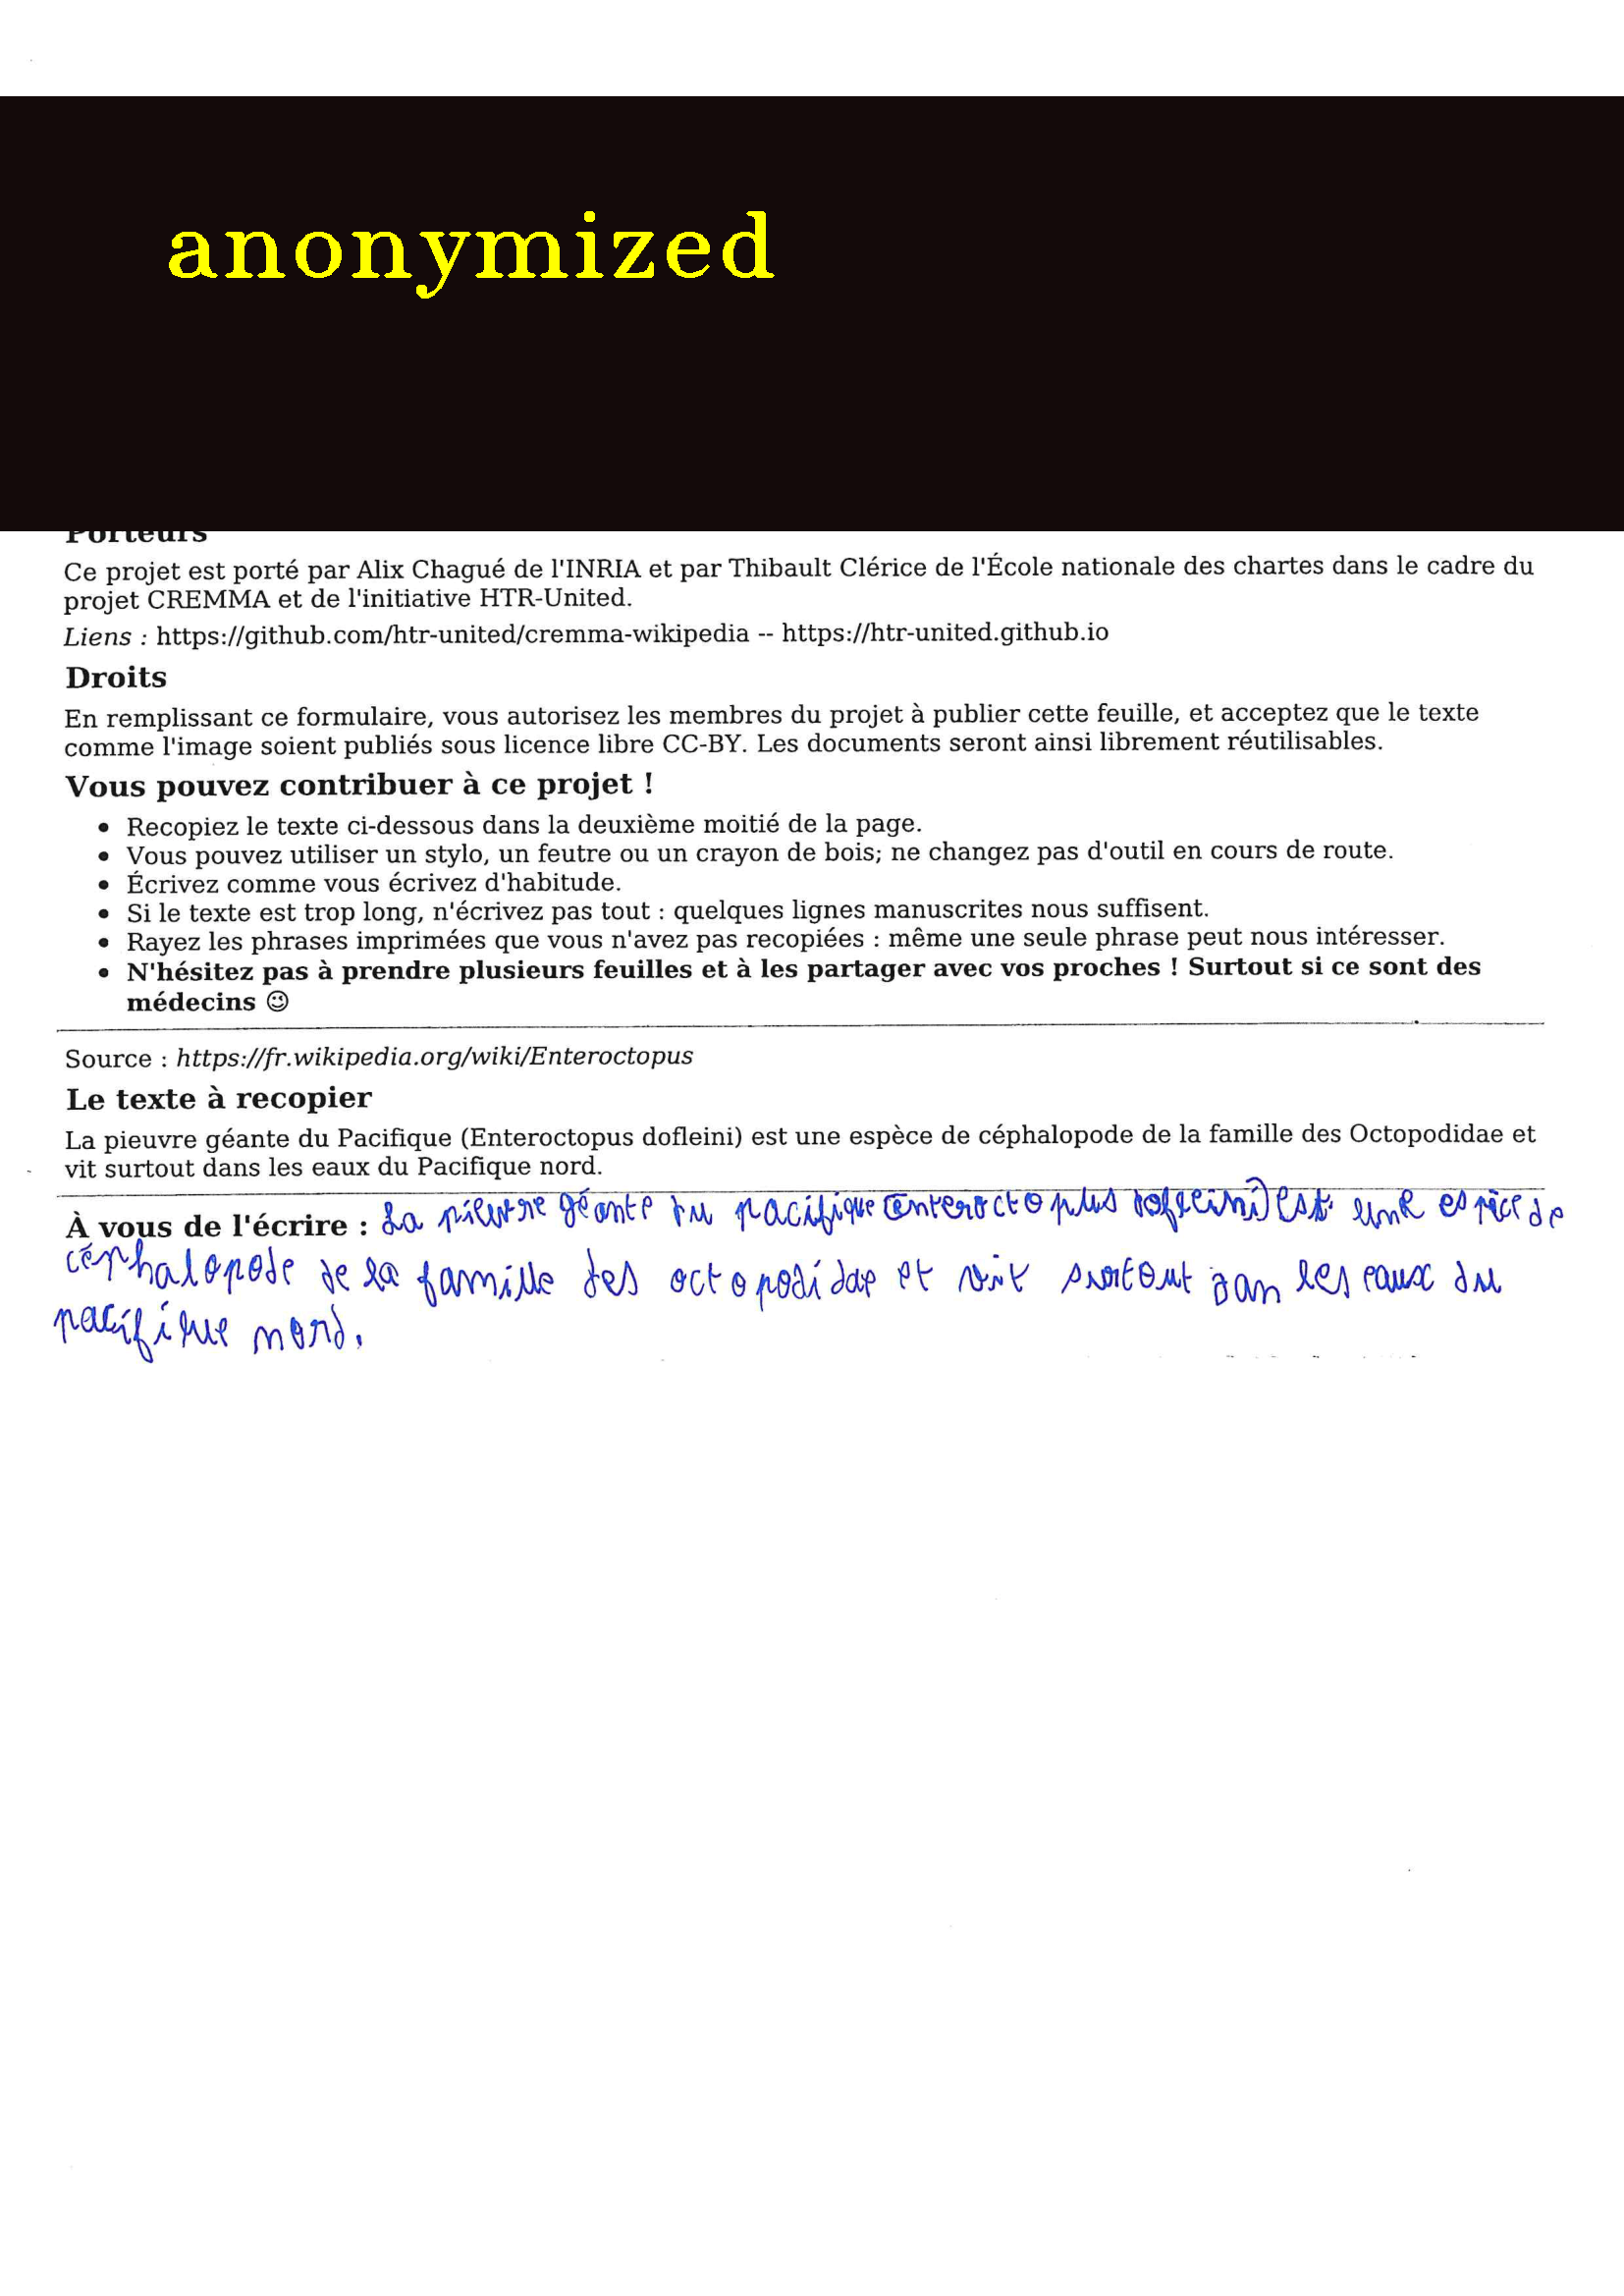 anonymized
Porteurs
Ce projet est porté par Alix Chagué de l'INRIA et par Thibault Clérice de l'École nationale des chartes dans le cadre du
projet CREMMA et de l'initiative HTR-United.
Liens : https://github.com/htr-united/cremma-wikipedia -- https://htr-united.github.io
Droits
En remplissant ce formulaire, vous autorisez les membres du projet à publier cette feuille, et acceptez que le texte
comme l'image soient publiés sous licence libre CC-BY. Les documents seront ainsi librement réutilisables.
Vous pouvez contribuer à ce projet !
• Recopiez le texte ci-dessous dans la deuxième moitié de la page.
• Vous pouvez utiliser un stylo, un feutre ou un crayon de bois; ne changez pas d'outil en cours de route.
• Écrivez comme vous écrivez d'habitude.
• Si le texte est trop long, n'écrivez pas tout : quelques lignes manuscrites nous suffisent.
• Rayez les phrases imprimées que vous n'avez pas recopiées : même une seule phrase peut nous intéresser.
• N'hésitez pas à prendre plusieurs feuilles et à les partager avec vos proches ! Surtout si ce sont des
médecins 😉
Source : https://fr.wikipedia.org/wiki/Enteroctopus
Le texte à recopier
La pieuvre géante du Pacifique (Enteroctopus dofleini) est une espèce de céphalopode de la famille des Octopodidae et
vit surtout dans les eaux du Pacifique nord.
À vous de l'écrire : La pieuvre géante du pacifique (enteroctoplus dofleini) est une espèce de
céphalopode de la famille des octopodidae et vit surtout dan les eaux du
pacifique nord.